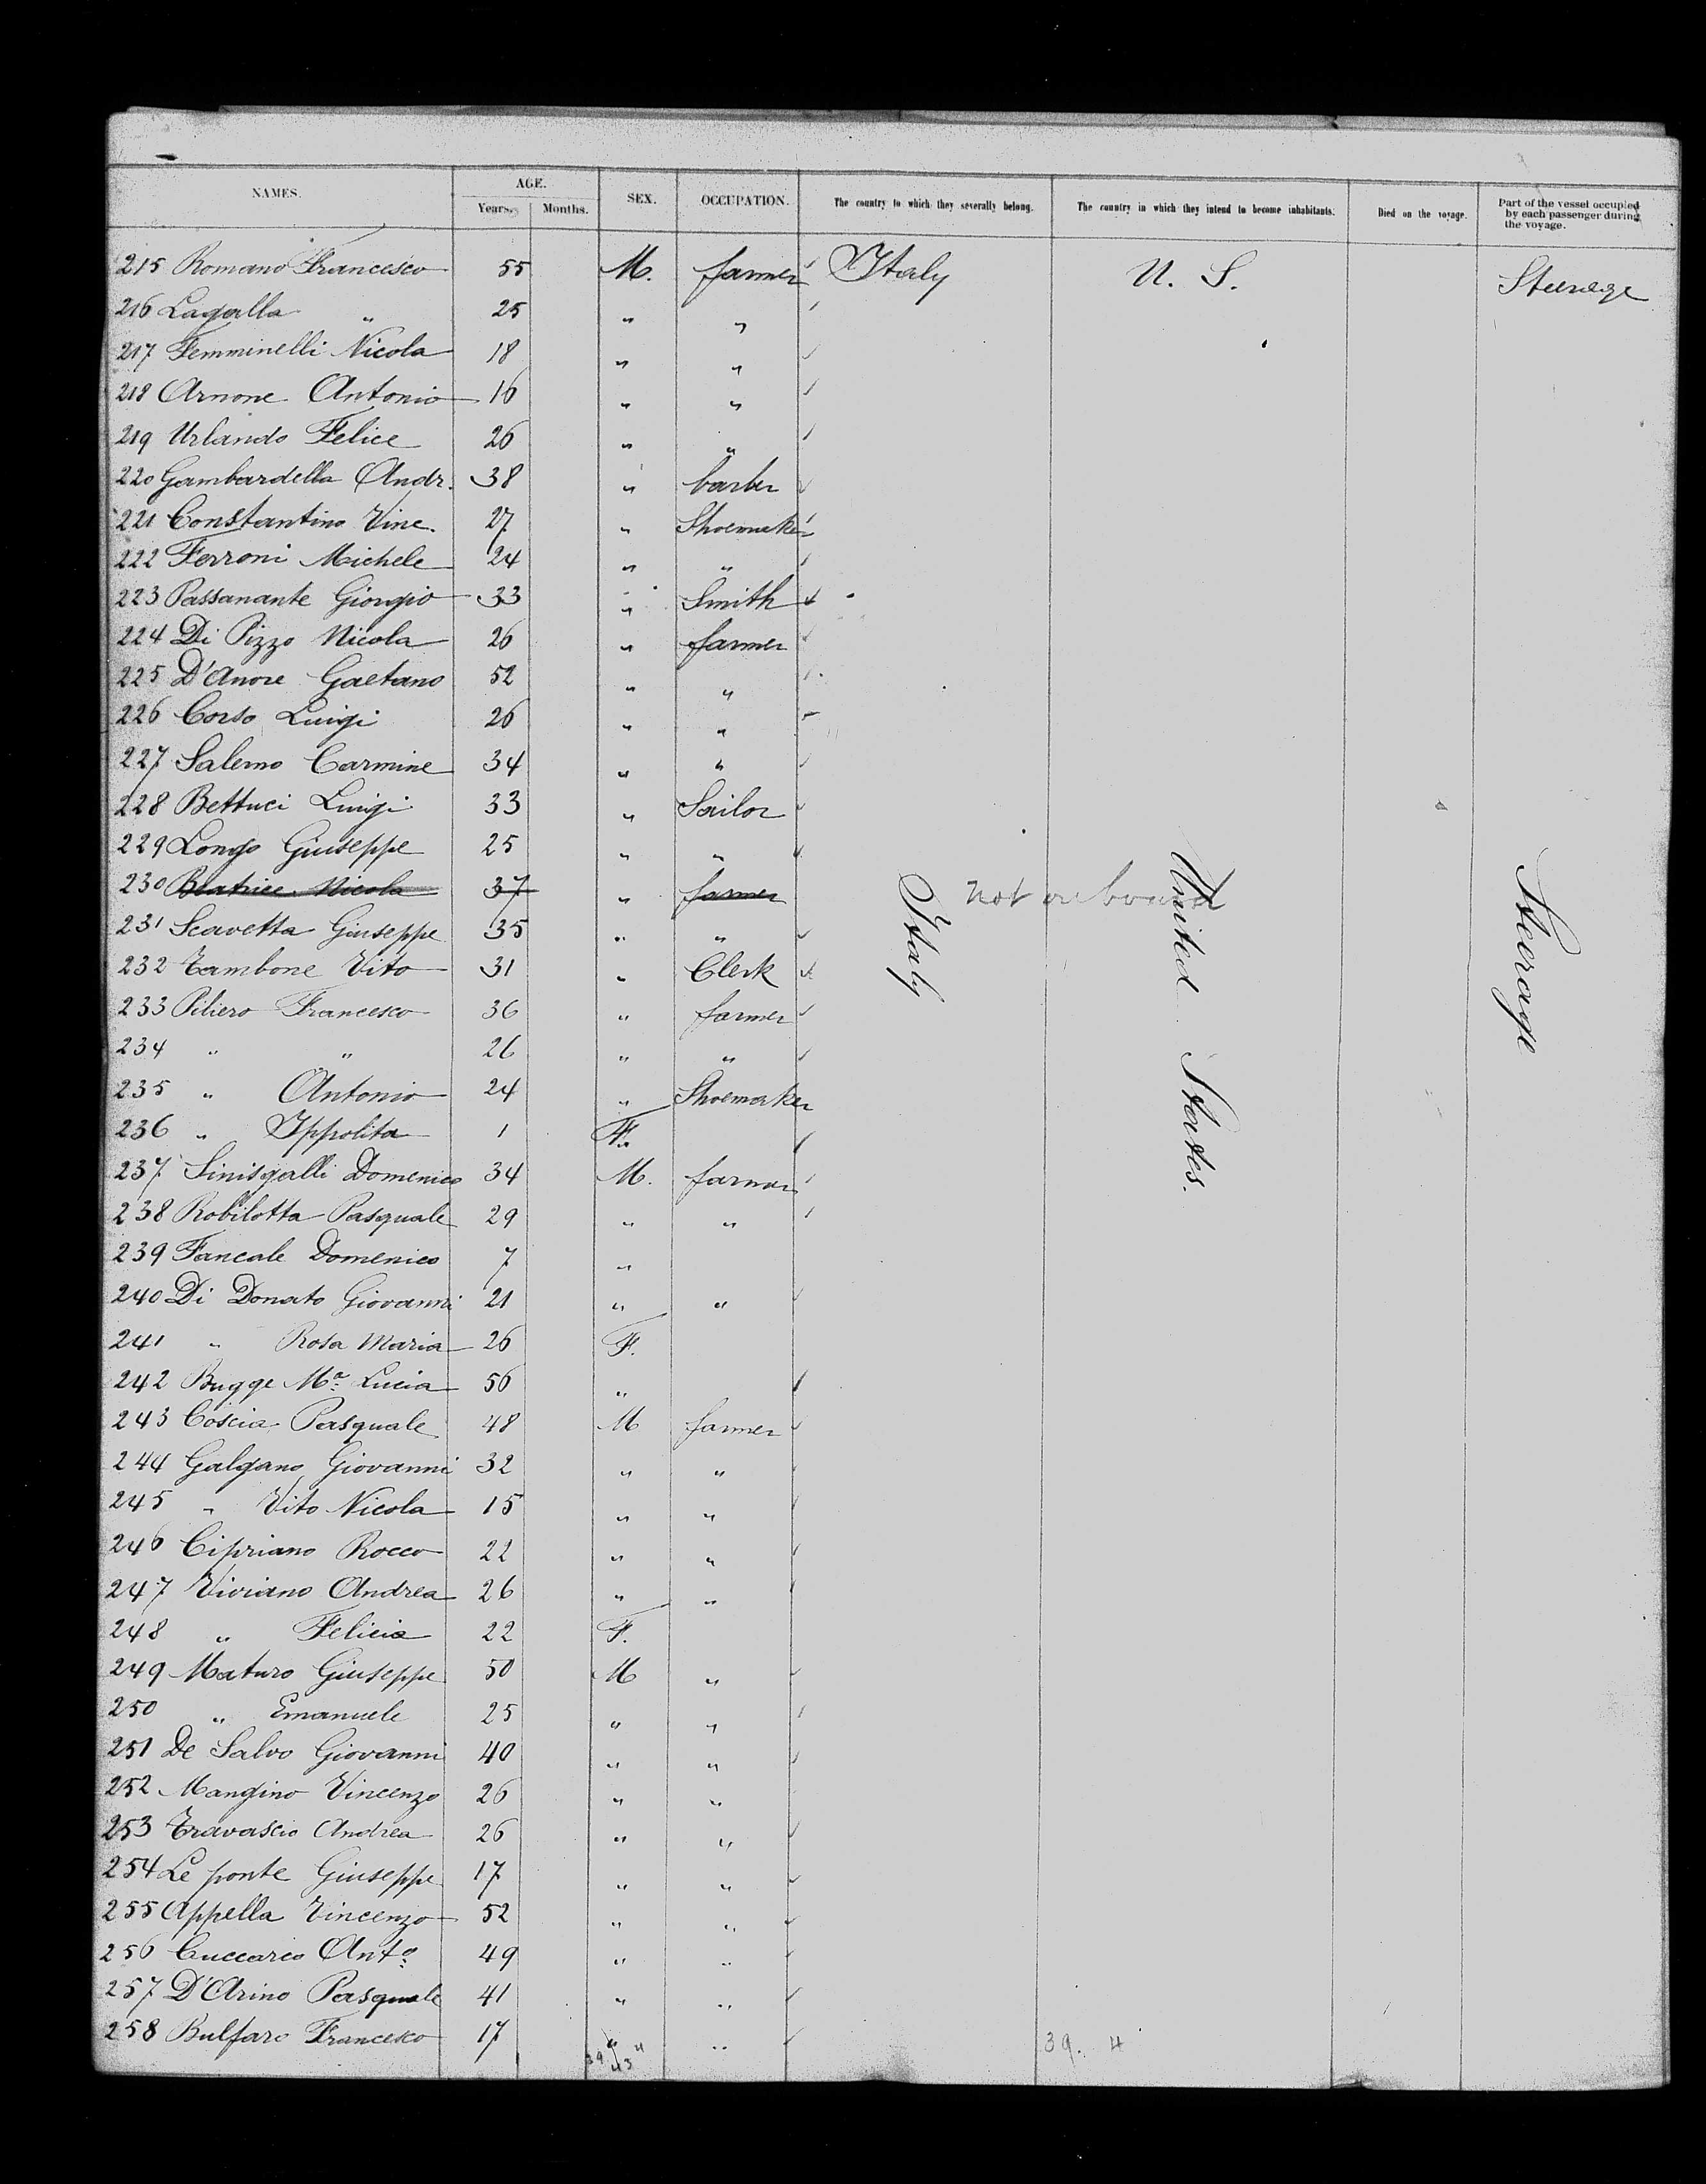 NAMES. AGE. SEX. OCCUPATION. The country to which they severally belong. The country in which they intend to become inhabitants. Died on the voyage. Part of the vessel occupied by each passenger during the voyage.
Years. Months.
215 Romano Francesco 55 M. farmer Italy U. S. Steerage
216 Lagalla " 25 " "
217 Femminelli Nicola 18 " "
218 Arnone Antonio 16 " "
219 Urlando Felice 26 " "
220 Gambardella Andr. 38 " barber
221 Constantino Vinc. 27 " Shoemaker
222 Ferroni Michele 24 " "
223 Passanante Giorgio 33 " Smith
224 Di Pizzo Nicola 26 " farmer
225 D'Anore Gaetano 52 " "
226 Corso Luigi 26 " "
227 Salerno Carmine 34 " "
228 Bettuci Luigi 33 " Sailor
229 Longo Giuseppe 25 " "
230 Beatrice Nicola 37 " farmer Italy not on board United States. Steerage
231 Scavetta Giuseppe 35 " "
232 Tambone Vito 31 " Clerk
233 Piliero Francesco 36 " farmer
234 " " 26 " "
235 " Antonio 24 " Shoemaker
236 " Ippolita 1 F.
237 Sinisgalli Domenico 34 M. farmer
238 Robilotta Pasquale 29 " "
239 Fancale Domenico 7 "
240 Di Donato Giovanni 21 " "
241 " Rosa Maria 26 F.
242 Bugge Ma. Lucia 56 "
243 Coscia Pasquale 48 M farmer
244 Galgano Giovanni 32 " "
245 " Vito Nicola 15 " "
246 Cipriano Rocco 22 " "
247 Viviano Andrea 26 " "
248 " Felicia 22 F.
249 Maturo Giuseppe 50 M "
250 " Emanuele 25 " "
251 De Salvo Giovanni 40 " "
252 Mangino Vincenzo 26 " "
253 Travascio Andrea 26 " "
254 Le ponte Giuseppe 17 " "
255 Appella Vincenzo 52 " "
256 Cuccarco Anto. 49 " "
257 D'Arino Pasquale 41 " "
258 Bulfaro Francesco 17 " "
39 4 43 39. 4